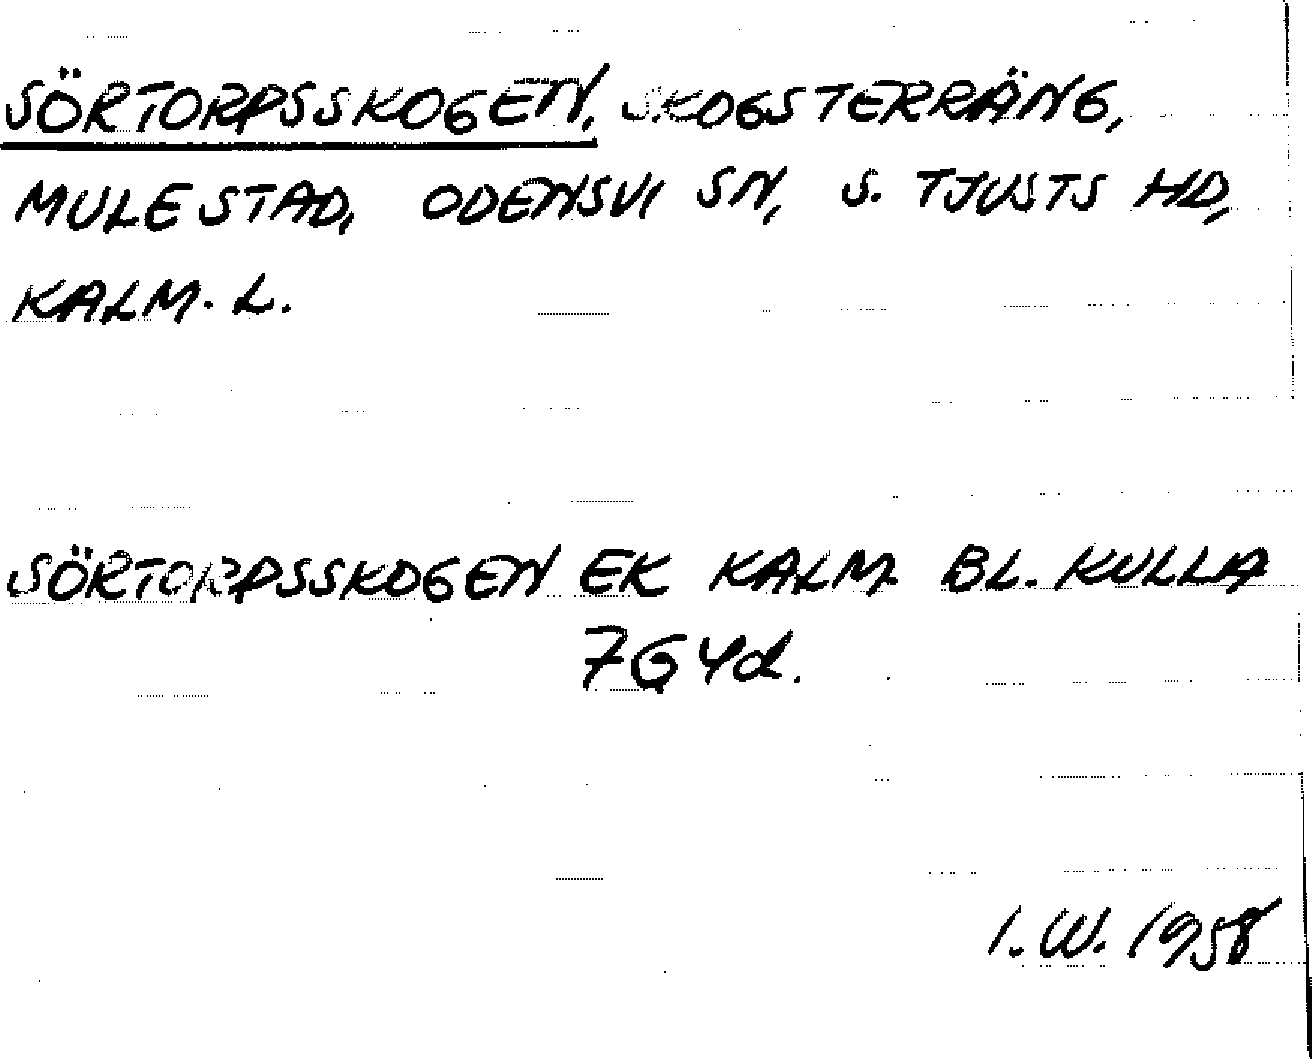 SÖRTORPSSKOGEN, SKOGSTERRÄNG,
MULESTAD, ODENSVI SN, S. TJUSTS HD,
KALM. L.
SÖRTORPSSKOGEN EK KALM. BL. KULLA
7G4d.
I.W. 1958